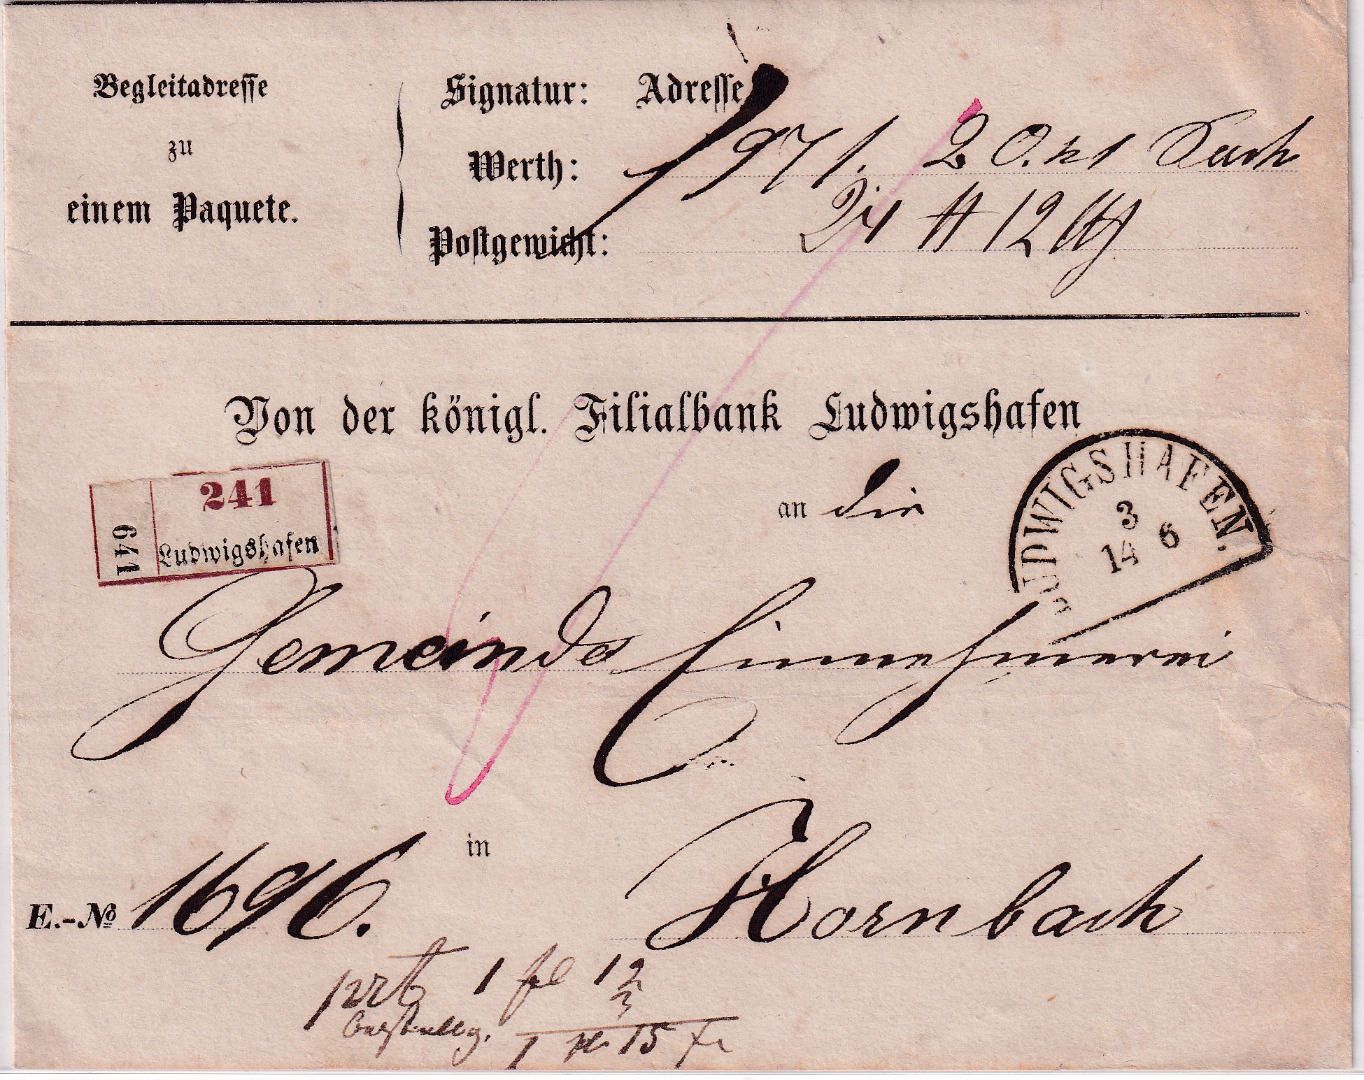 Begleitadresse
zu
einem Paquete.
Signatur: Adresse
Werth: 1971. 20. kr
Postgewicht: 24 ℔ 12
Von der königl. Filialbank Ludwigshafen
an die
241
641
Ludwigshafen
LUDWIGSHAFEN.
3
14 6
Gemeinde Einnehmerei
in Hornbach
E.-No 1696.
1 fl 12
3
1 fl 15 Xr